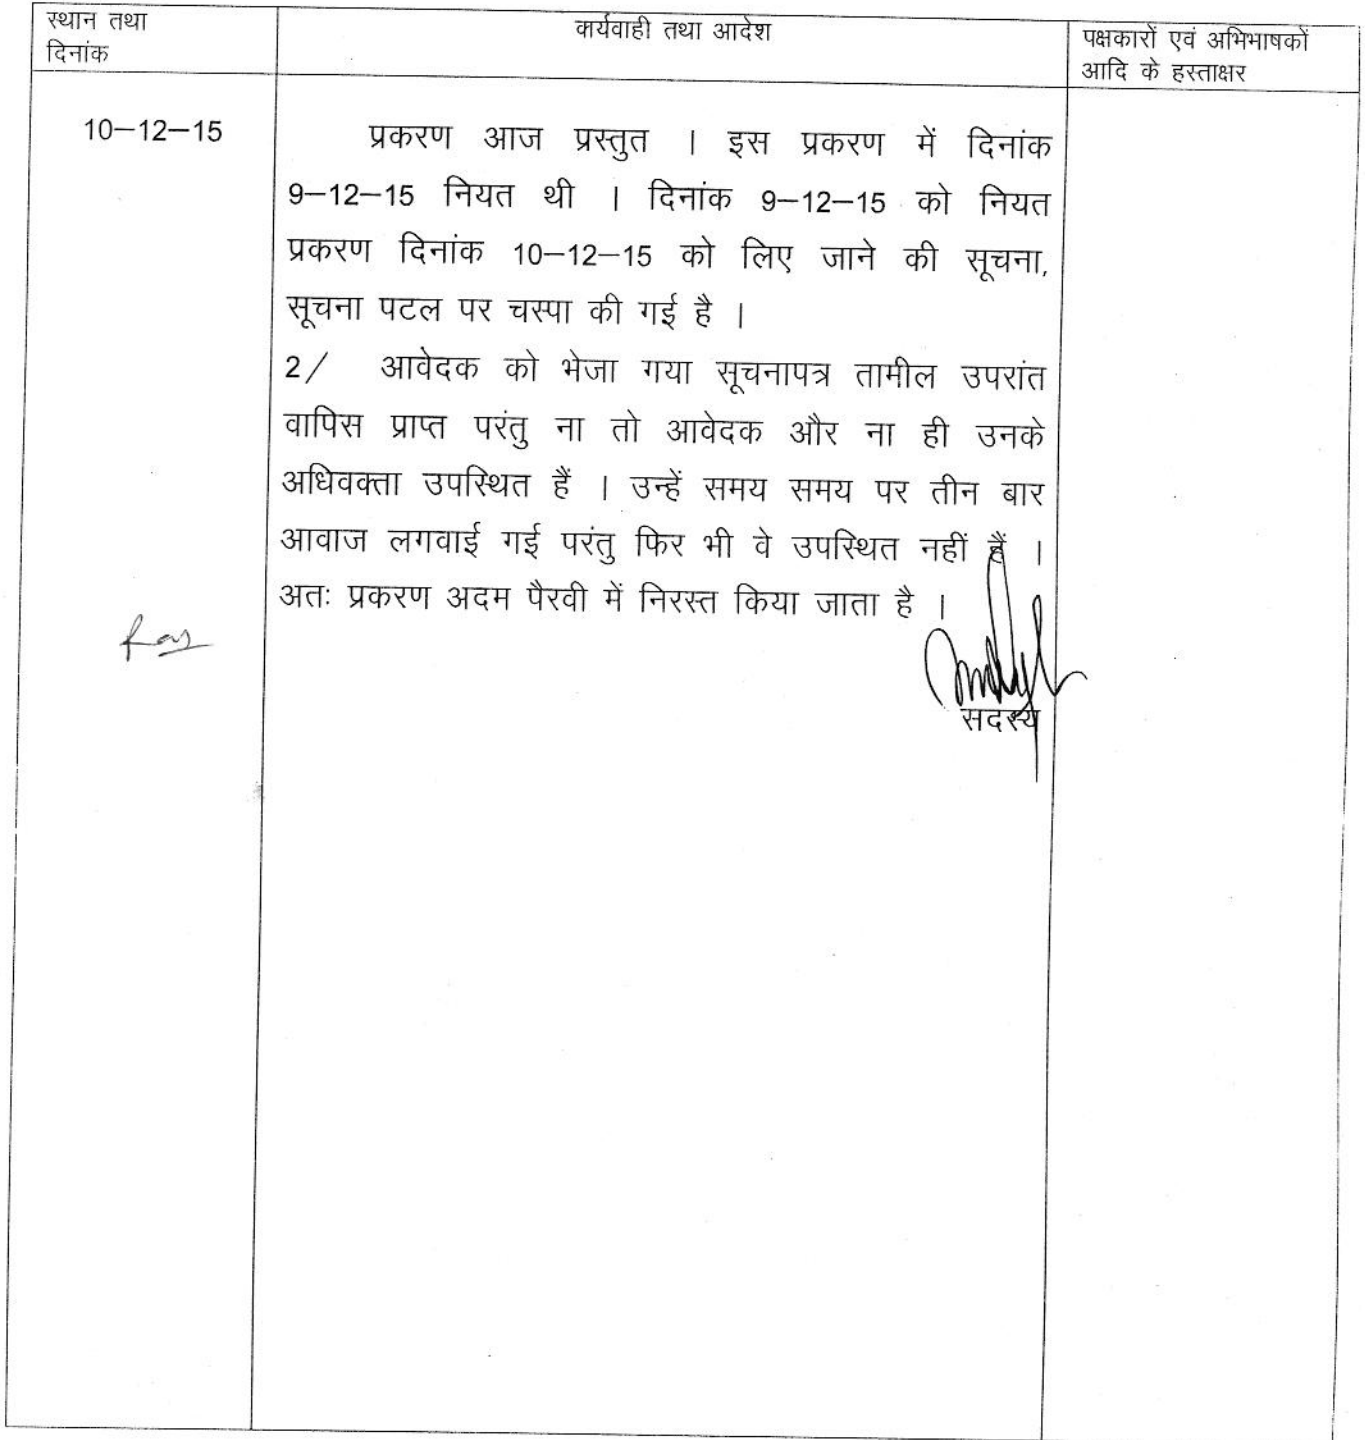 स्थान तथा
दिनांक
कार्यवाही तथा आदेश
पक्षकारों एवं अभिभाषकों
आदि के हस्ताक्षर
10—12—15
प्रकरण आज प्रस्तुत । इस प्रकरण में दिनांक
9—12—15 नियत थी । दिनांक 9—12—15 को नियत
प्रकरण दिनांक 10—12—15 को लिए जाने की सूचना,
सूचना पटल पर चस्पा की गई है ।
2/ आवेदक को भेजा गया सूचनापत्र तामील उपरांत
वापिस प्राप्त परंतु ना तो आवेदक और ना ही उनके
अधिवक्ता उपस्थित हैं । उन्हें समय समय पर तीन बार
आवाज लगवाई गई परंतु फिर भी वे उपस्थित नहीं हैं ।
अतः प्रकरण अदम पैरवी में निरस्त किया जाता है ।
सदस्य